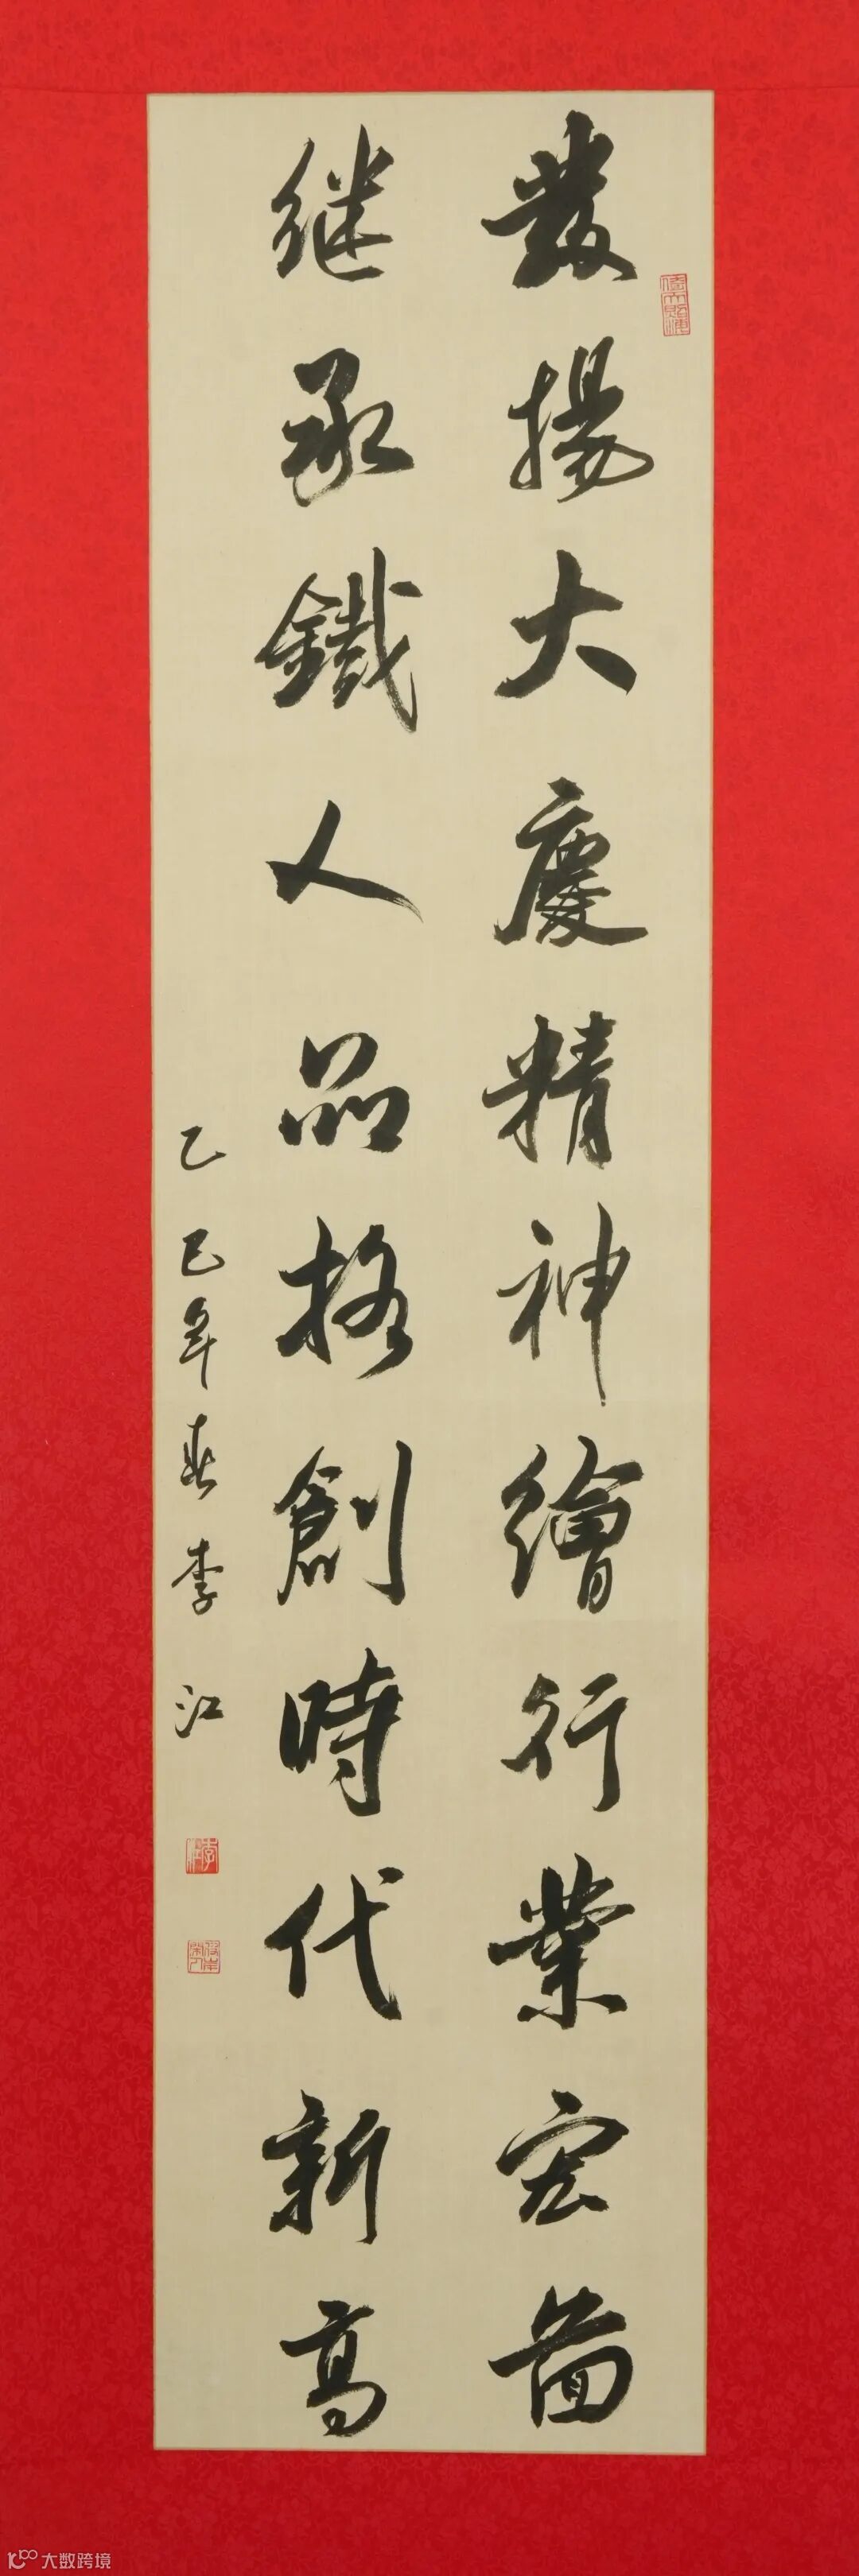 發揚大慶精神繪行業宏圖
继承鐵人品格創時代新高
乙巳年春李江
大数跨境